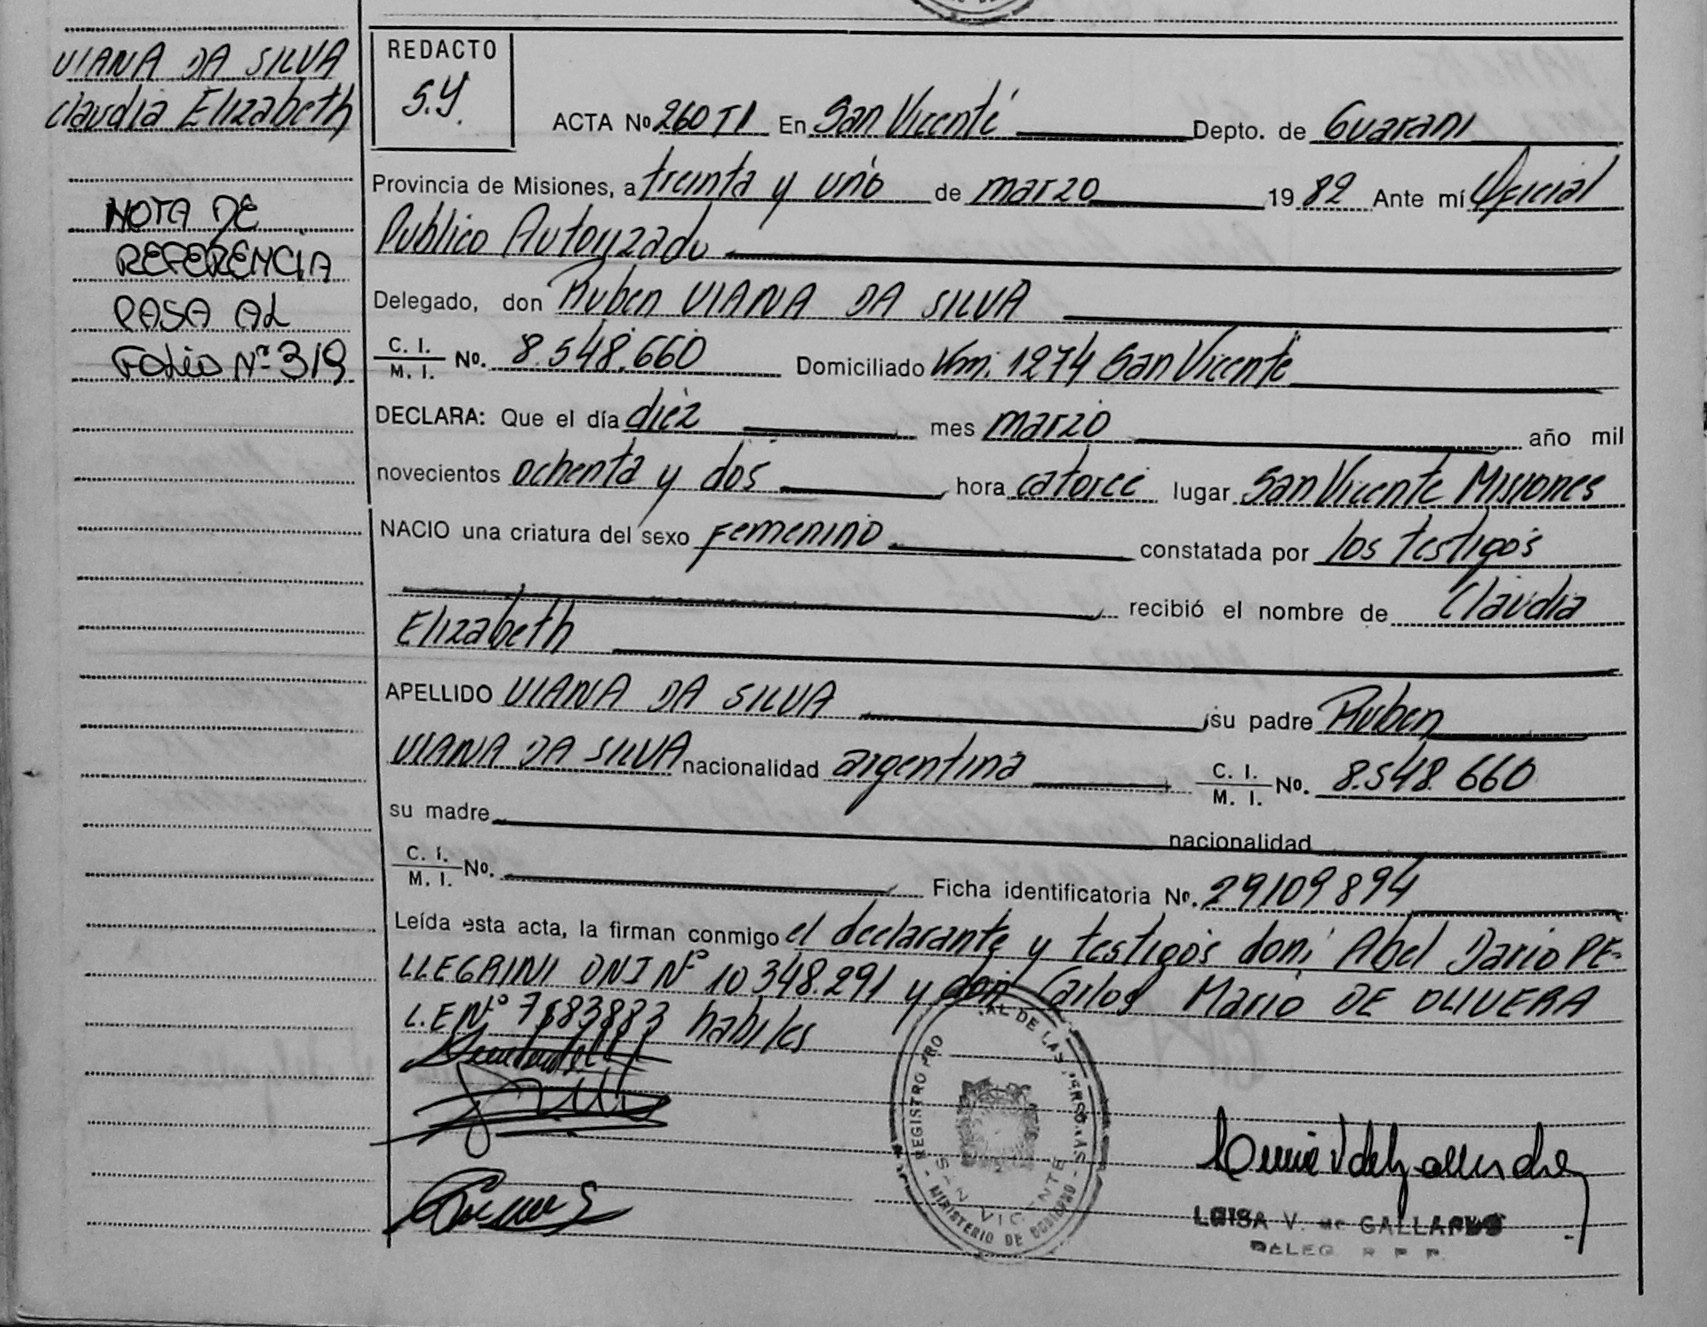 VIANA DA SILVA
Claudia Elizabeth
NOTA DE
REFERENCIA
PASA AL
FOLIO Nº 319
REDACTO
S.Y.
ACTA Nº 260 TI En San Vicente Depto. de Guarani
Provincia de Misiones, a treinta y uno de marzo 1982 Ante mí Oficial
Publico Autoryzado
Delegado, don Ruben VIANA DA SILVA
C. I. / M. I. No. 8.548.660 Domiciliado Km. 1274 San Vicente
DECLARA: Que el día diez mes marzo año mil
novecientos ochenta y dos hora catorce lugar San Vicente Misiones
NACIO una criatura del sexo femenino constatada por los testigos
recibió el nombre de Claudia
Elizabeth
APELLIDO VIANA DA SILVA su padre Ruben
VIANA DA SILVA nacionalidad argentina C. I. / M. I. No. 8.548.660
su madre nacionalidad
C. I. / M. I. No. Ficha identificatoria No. 29109894
Leída esta acta, la firman conmigo el declarante y testigos don: Abel Dario PE-
LLEGRINI DNI Nº 10.348.291 y don Carlos Mario DE OLIVERA
L.E Nº 7683883 habiles
REGISTRO PRO AL DE LAS PERSONAS
SAN VICENTE
MINISTERIO DE GOBIERNO
LUISA V. de GALLARDO
DELEG. R. P. P.